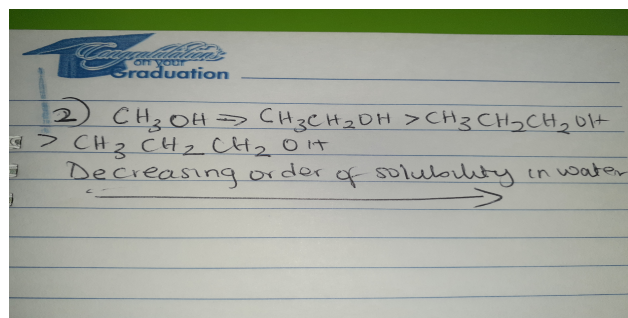 Congratulations
on your
Graduation
2) CH₃OH => CH₃CH₂OH > CH₃CH₂CH₂OH
> CH₃ CH₂ CH₂ OH
Decreasing order of solubility in water